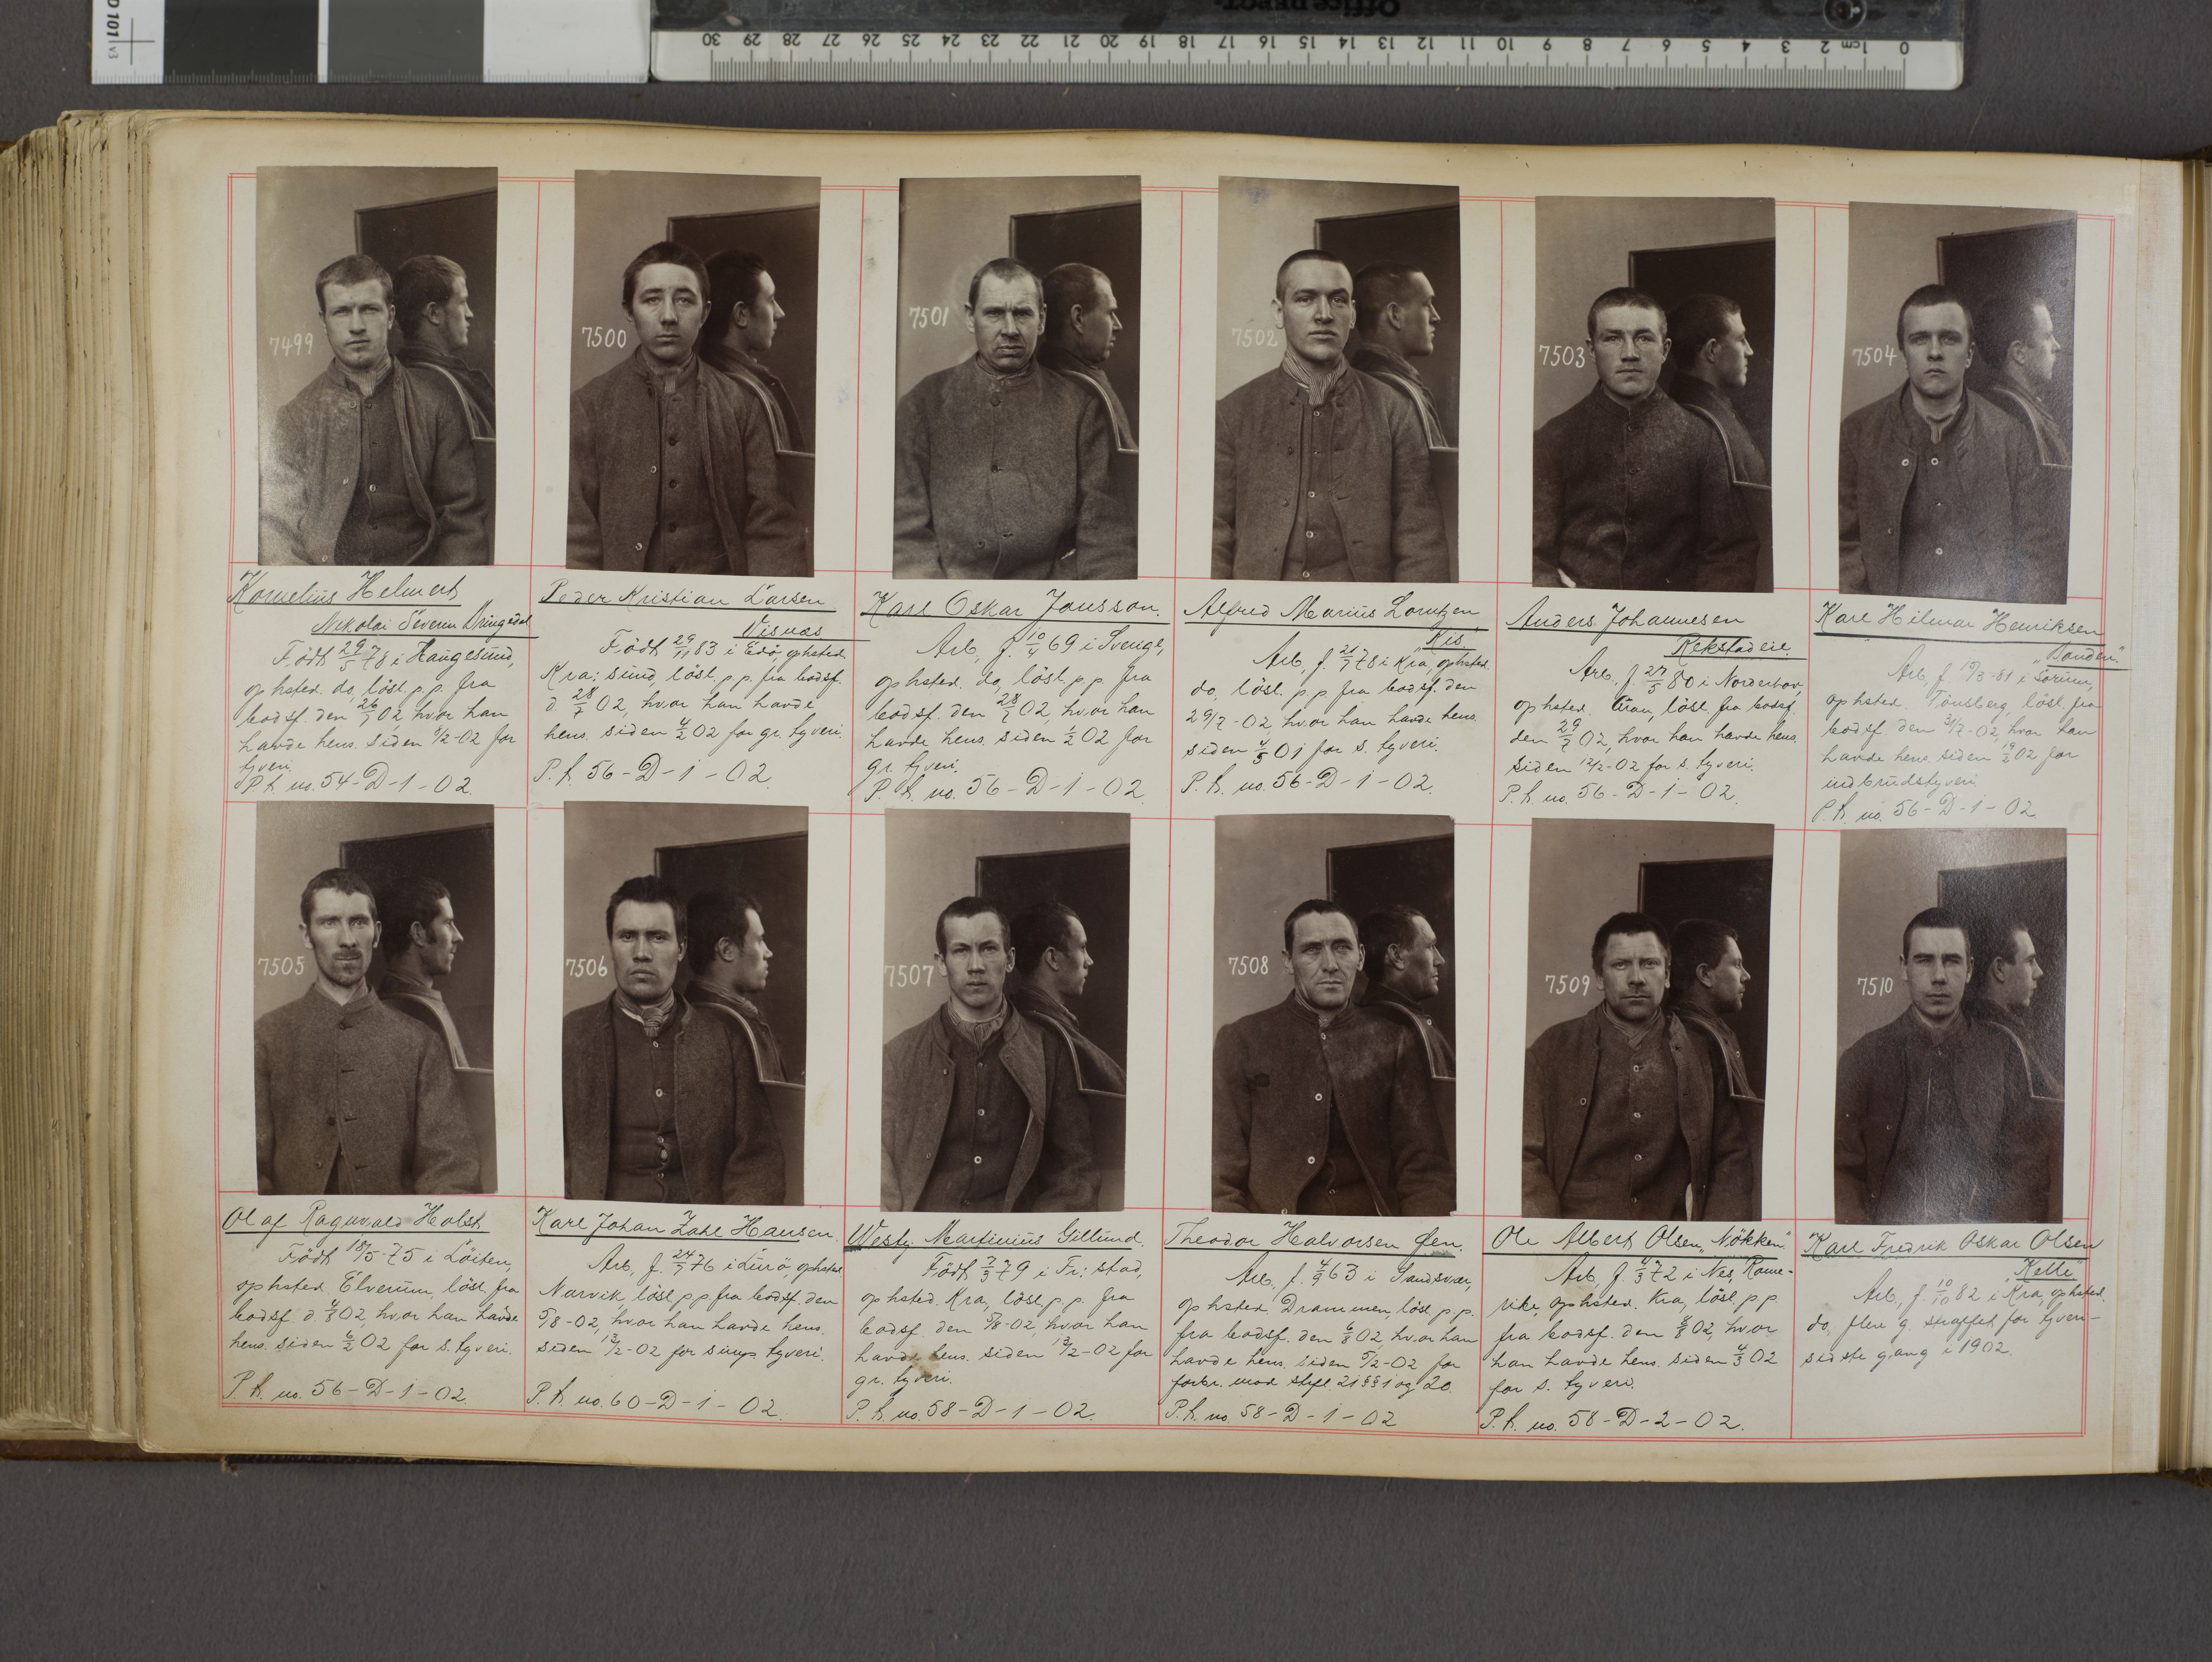 OfficeDEPOT.
0 1cm 2 3 4 5 6 7 8 9 10 11 12 13 14 15 16 17 18 19 20 21 22 23 24 25 26 27 28 29 30
7499
Kornelius Helmert
Nikolai Severin Dringedal
Födt 29/5 78 i Haugesund,
ophsted. do, lösl. p.p. fra
bodsf. den 26/7 02, hvor han
havde hens. siden 8/2-02 for
tyveri.
P.k. no. 54-D-1-02.
7500
Peder Kristian Larsen
Visnæs
Födt 29/11 83 i Edö, ophsted.
Kra: sund, lösl. p.p. fra bodsf.
d. 28/7 02, hvor han havde
hens. siden 4/2 02 for gr. tyveri.
P.k. 56-D-1-02.
7501
Karl Oskar Jonsson.
Arb, f. 10/4 69 i Sverige,
ophsted. do, lösl. p.p. fra
bodsf. den 28/7 02, hvor han
havde hens. siden 1/2 02 for
gr. tyveri.
P.k. no. 56-D-1-02.
7502
Alfred Marius Lorutzen
"Kis.
Arb, f. 21/7 78 i Kra, ophsted.
do, lösl. p.p. fra bodsf. den
29/7-02, hvor han havde hens.
siden 4/5 01 for s. tyveri.
P.k. no. 56-D-1-02.
7503
Anders Johannesen
Rekstadeie.
Arb. f. 27/5 80 i Norderhov,
ophsted. Gran, lösl. fra bodsf.
den 29/7 02, hvor han havde hens.
siden 12/2-02 for s. tyveri.
P.k. no. 56-D-1-02.
7504
Karl Hilmar Henriksen
Arb, f. 19/3-81 i Sörum,
ophsted. Tönsberg, lösl. fra
bodsf. den 31/7-02, hvor han
havde hens. siden 19/2 02 for
indbrudstyveri.
P.k. no. 56-D-1-02.
7505
Olaf Ragnvald Holst
Födt 18/5-75 i Löiten,
ophsted. Elverum, lösl. fra
bodsf. d. 4/8 02, hvor han havde
hens. siden 6/2 02 for s. tyveri.
P.k. no. 56-D-1-02.
7506
Karl Johan Zahl Hansen.
Arb, f. 24/7 76 i Lurö, ophsted.
Narvik, lösl p.p fra bodsf. den
5/8-02, hvor han havde hens.
siden 13/2-02 for simp. tyveri.
P.k. no. 60-D-1-02.
7507
Westy Martinius Gillund.
Födt 7/3 79 i Fr: stad,
ophsted. Kra, lösl. p.p. fra
bodsf. den 5/8-02, hvor han
havde hens. siden 13/2-02 for
gr. tyveri.
P.k. no. 58-D-1-02.
7508
Theodor Halvorsen Øen.
Arb, f. 4/9 63 i Sandsvær,
ophsted. Drammen, lösl. p.p.
fra bodsf. den 6/8 02, hvor han
havde hens. siden 5/2-02 for
forbr. mod stfl. 21 §§ 1 og 20.
P.k. no. 58-D-1-02
7509
Ole Albert Olsen "Nökken"
Arb, f. 4/3 72 i Nes, Rome-
rike, ophsted. Kra, lösl. p.p.
fra bodsf. den 8/8 02, hvor
han havde hens. siden 4/3 02
for s. tyveri.
P.k. no. 58-D-2-02.
7510
Karl Fredrik Oskar Olsen
"Kelle"
Arb, f. 10/10 82 i Kra, ophsted.
do, flere g. straffet for tyveri-
sidste gang i 1902.